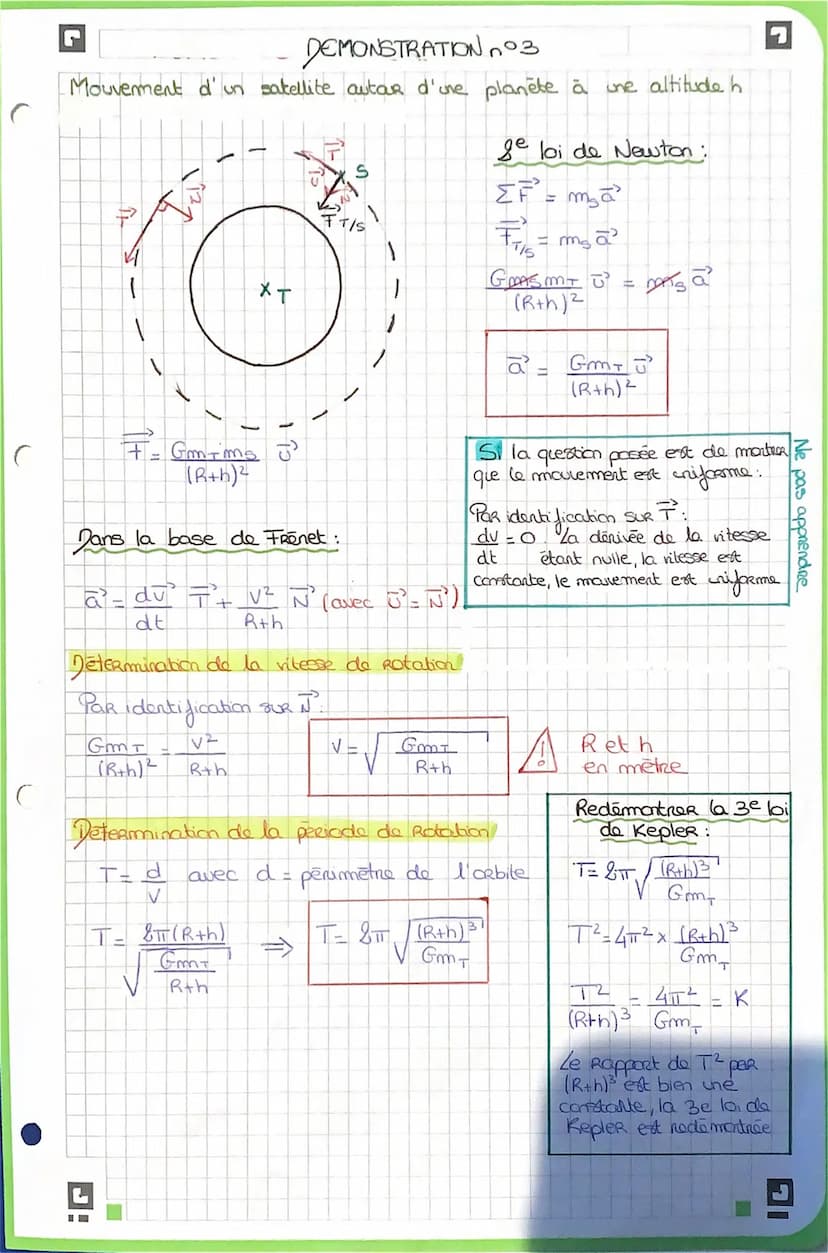 DEMONSTRATION n°3
Mouvement d'un satellite autour d'une planète à une altitude h
T⃗
N⃗
T⃗
S
U⃗
N⃗
F⃗ T/S
x T
F⃗ = Gm_T m_S / (R+h)² U⃗
2e loi de Newton :
ΣF⃗ = m_S a⃗
F⃗_T/S = m_S a⃗
Gm_S m_T / (R+h)² U⃗ = m_S a⃗
a⃗ = Gm_T / (R+h)² U⃗
Si la question posée est de montrer
que le mouvement est uniforme :
Par identification sur T⃗ :
dv/dt = 0. La dérivée de la vitesse
étant nulle, la vitesse est
constante, le mouvement est uniforme
Ne pas apprendre
Dans la base de Frénet :
a⃗ = dv⃗/dt T⃗ + V²/R+h N⃗ (avec U⃗ = N⃗)
Détermination de la vitesse de rotation
Par identification sur N⃗ :
Gm_T / (R+h)² = V² / R+h
V = √(Gm_T / R+h)
! R et h
en mètre
Détermination de la période de rotation
T = d/V avec d = périmètre de l'orbite
T = 2π(R+h) / √(Gm_T / R+h) ⇒ T = 2π √((R+h)³ / Gm_T)
Redémontrer la 3e loi
de Kepler :
T = 2π √((R+h)³ / Gm_T)
T² = 4π² × (R+h)³ / Gm_T
T² / (R+h)³ = 4π² / Gm_T = K
Le rapport de T² par
(R+h)³ est bien une
constante, la 3e loi de
Kepler est redémontrée